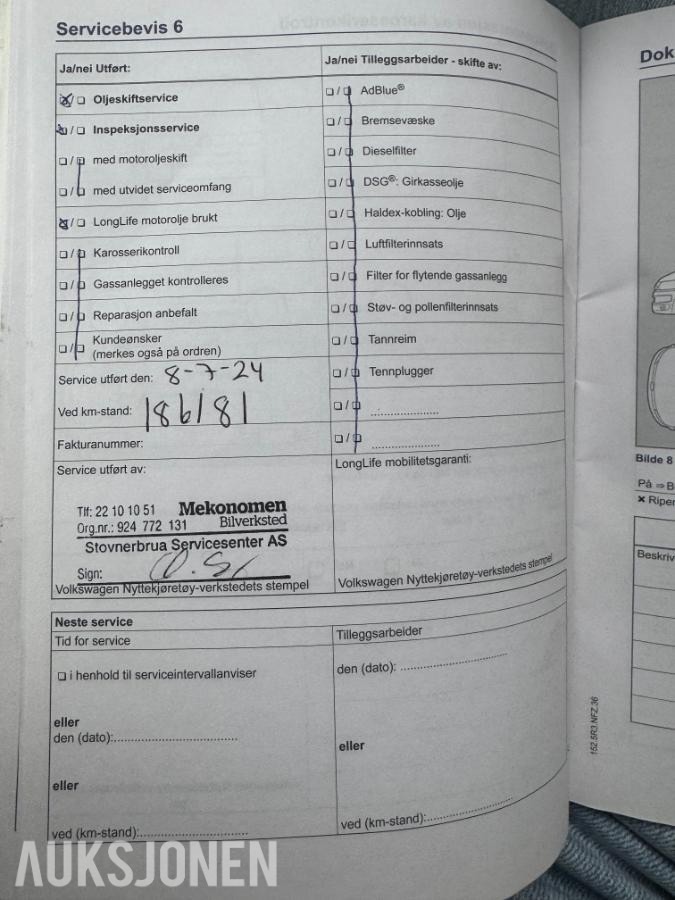 Servicebevis 6
Ja/nei Utført:
☒/☐ Oljeskiftservice
☒/☐ Inspeksjonsservice
☐/☐ med motoroljeskift
☐/☐ med utvidet serviceomfang
☒/☐ LongLife motorolje brukt
☐/☐ Karosserikontroll
☐/☐ Gassanlegget kontrolleres
☐/☐ Reparasjon anbefalt
☐/☐ Kundeønsker
(merkes også på ordren)
Service utført den: 8-7-24
Ved km-stand: 186181
Fakturanummer:
Service utført av:
Tlf: 22 10 10 51 Mekonomen
Org.nr.: 924 772 131 Bilverksted
Stovnerbrua Servicesenter AS
Sign:
Volkswagen Nyttekjøretøy-verkstedets stempel
Ja/nei Tilleggsarbeider - skifte av:
☐/☐ AdBlue®
☐/☐ Bremsevæske
☐/☐ Dieselfilter
☐/☐ DSG®: Girkasseolje
☐/☐ Haldex-kobling: Olje
☐/☐ Luftfilterinnsats
☐/☐ Filter for flytende gassanlegg
☐/☐ Støv- og pollenfilterinnsats
☐/☐ Tannreim
☐/☐ Tennplugger
☐/☐ .....................
☐/☐ .....................
LongLife mobilitetsgaranti:
Volkswagen Nyttekjøretøy-verkstedets stempel
Neste service
Tid for service
☐ i henhold til serviceintervallanviser
eller
den (dato):...................................
eller
ved (km-stand):..............................
Tilleggsarbeider
den (dato): ..............................
eller
ved (km-stand):........................
152.5R3.NFZ.36
Dok
Bilde 8
På ⇒ B
× Riper
Beskriv
AUKSJONEN